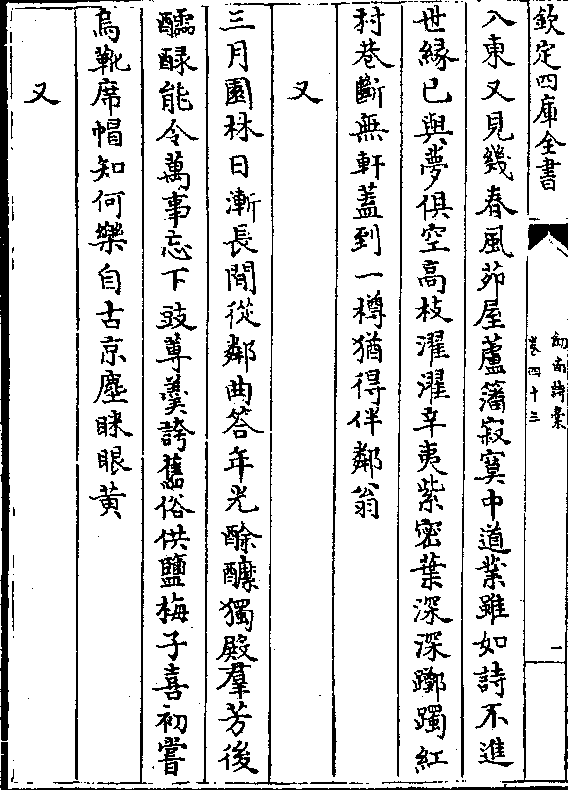 欽定四庫全書
劒南詩藁
卷四十三
一
入東又見幾春風茆屋蘆藩寂寞中道業雖如詩不進
世緣已與夢俱空高枝濯濯辛夷紫密葉深深躑躅紅
村巷斷無軒蓋到一樽猶得伴鄰翁
又
三月園林日漸長閒從鄰曲答年光酴醾獨殿羣芳後
醹醁能令萬事忘下豉蓴羹誇舊俗供鹽梅子喜初嘗
烏靴席帽知何樂自古京塵眯眼黃
又